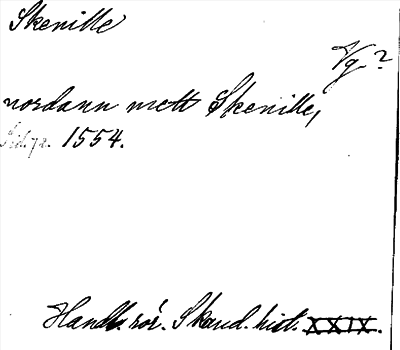 Skenille
Vg.?
nordann mett Skenille,
Sid. 72. 1554.
Handl. rör. Skand. hist. XXIX.